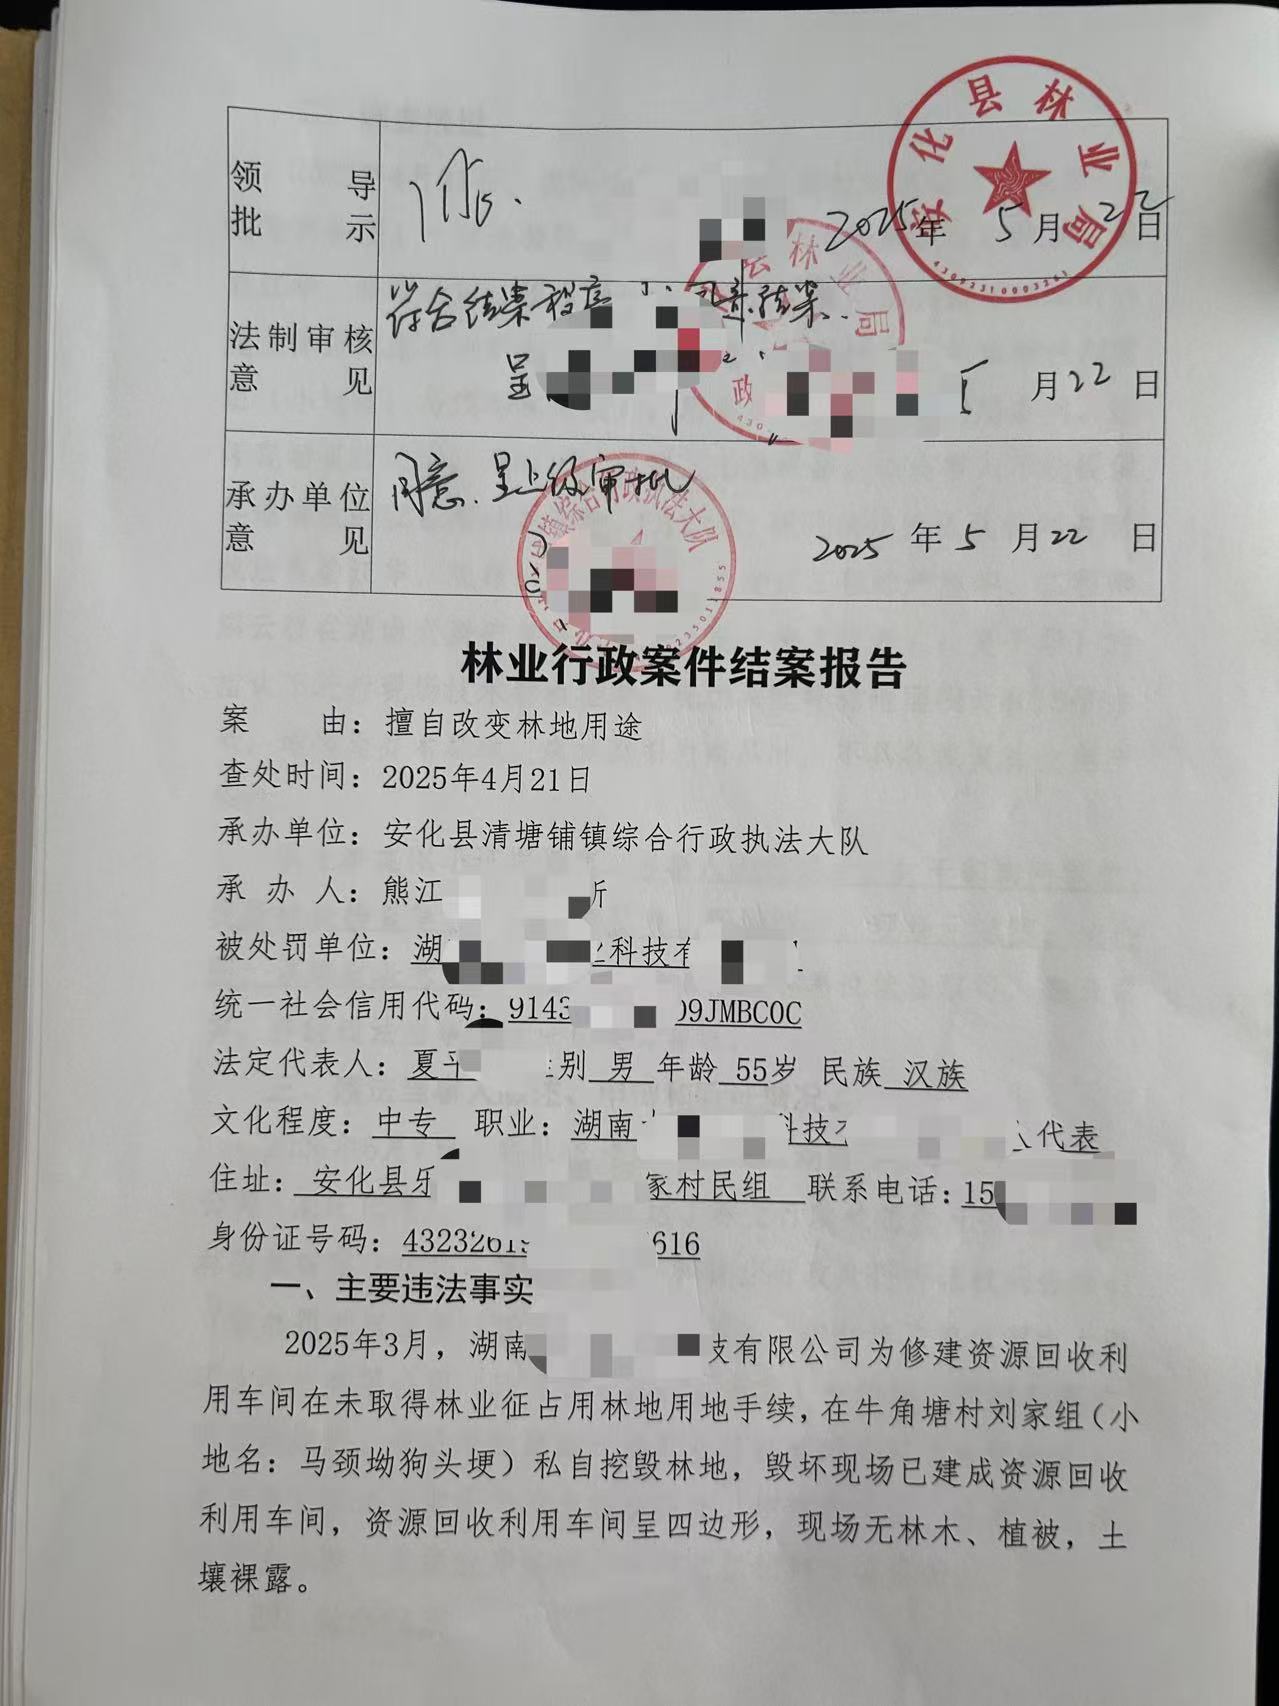 领导批示
2025年5月22日
安化县林业局
43092310003261
法制审核意见
符合结案程序
结案.
呈
月22日
林业局
政
承办单位意见
同意.呈上级审批
2025年5月22日
镇综合行政执法大队
林业行政案件结案报告
案 由：擅自改变林地用途
查处时间：2025年4月21日
承办单位：安化县清塘铺镇综合行政执法大队
承 办 人：熊江
被处罚单位：湖 科技有
统一社会信用代码：9143 09JMBC0C
法定代表人：夏平 别 男 年龄 55岁 民族 汉族
文化程度：中专 职业：湖南 科技 代表
住址：安化县乐 家村民组 联系电话：15
身份证号码：4323261 616
一、主要违法事实
2025年3月，湖南 技有限公司为修建资源回收利
用车间在未取得林业征占用林地用地手续，在牛角塘村刘家组（小
地名：马颈坳狗头埂）私自挖毁林地，毁坏现场已建成资源回收
利用车间，资源回收利用车间呈四边形，现场无林木、植被，土
壤裸露。